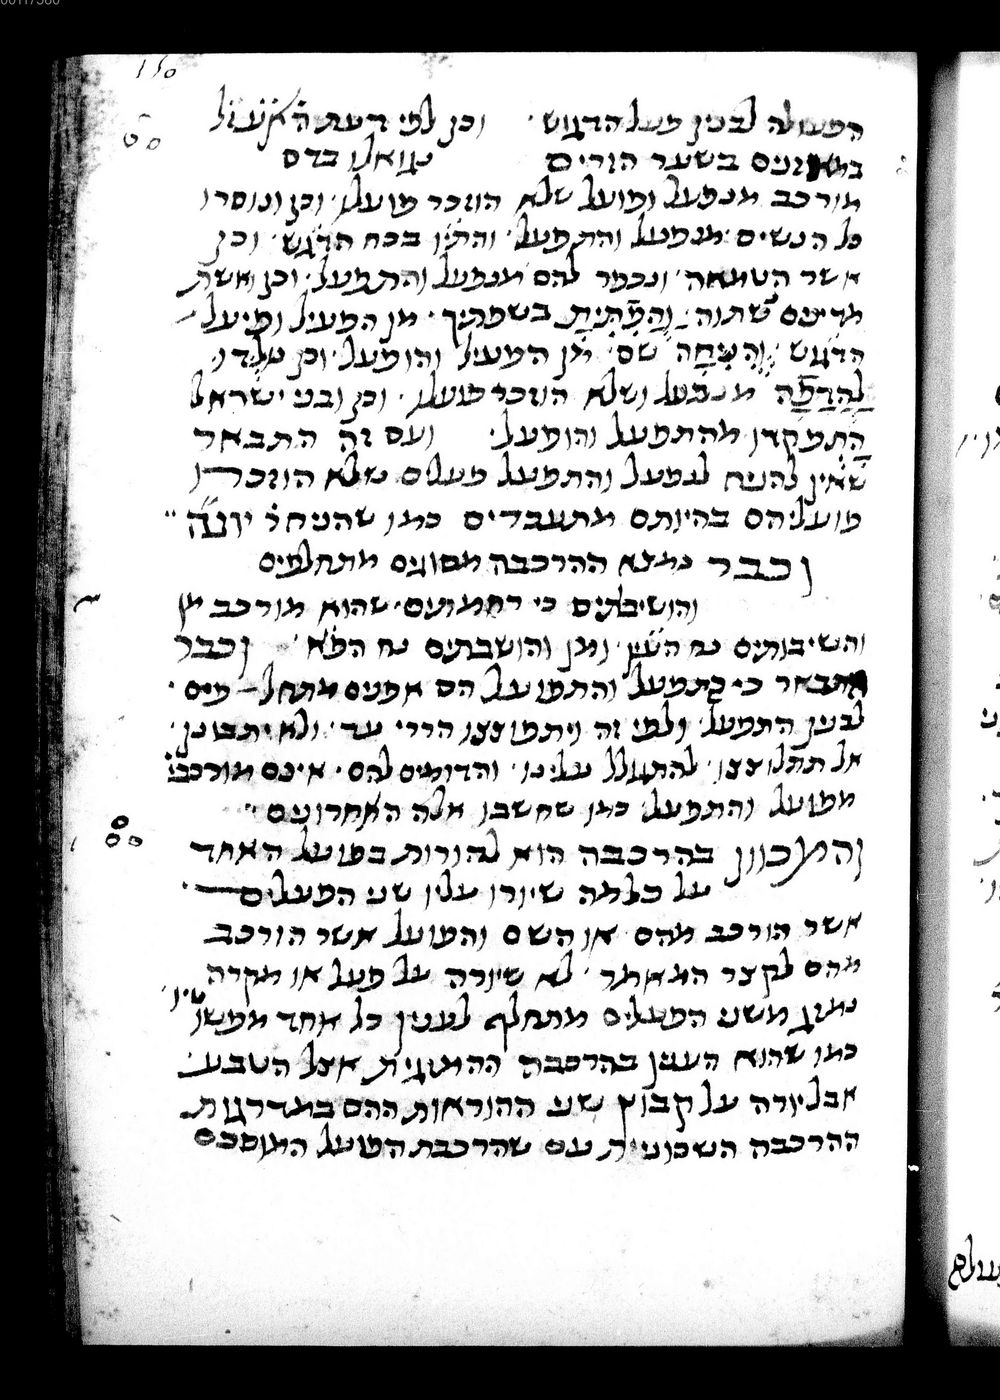 הפעולה לבנין פעל הדגוש וכן לפי דעת
במאזנים בשער הזרים נגואלו בדם
מורכב מנפעל ופועל שלא הוזכר פועלו וכן ונוסרו
כל הנשים מנפעל והתפעל והתיו בכח הדגש וכן
אשר הטמאה ונכפר להם מנפעל והתפעל וכן ואשת
מדינים שתוה והפתית בשפתיך מן הפעיל ופיעל
הדגוש והניחה שם מן הפעיל והופעל וכן
מנפעל ושלא הוזכר פועלו וכן ובני ישראל
התפקדו מהתפעל והופעל ועם זה התבאר
שאין להניח לנפעל והתפעל פעלים שלא הוזכרו
פועליהם בהיותם מתעברים כמו שהניח ר יונה
וכבר נמצא ההרכבה מסוגים מתחלפים
והושיבותים כי רחמתים שהוא מורכב מן
והשיבותים נח העין ומן והושבתים נח הפא וכבר
התבאר כי התפעל והתפועל הם אפנים מתחלפים
לבנין התפעל ולפי זה ויתפוצצו הררי עד ולא יתבונן
אל תתלוצצו להתעולל עלינו והדומים להם אינם מורכבי
מפועל והתפעל כמו שחשבו אלה האחרונים
והמכוון בהרכבה הוא להורות בפועל האחד
על כלמה שיורו עליו שני הפעלים
אשר הורכב מהם או השם והפועל אשר הורכב
מהם לקצר המאמר לא שיורה על פעל או מקרה
נמזג משני הפעלים מתחלף לענין כל אחד מפשוטיו
כמו שהוא הענין בהרכבה ההמזגית אצל הטבע
אבל יורה על קבוץ שני ההוראות ההם במדרגות
ההרכבה השכונית עם שהרכבת הפועל המוסכם